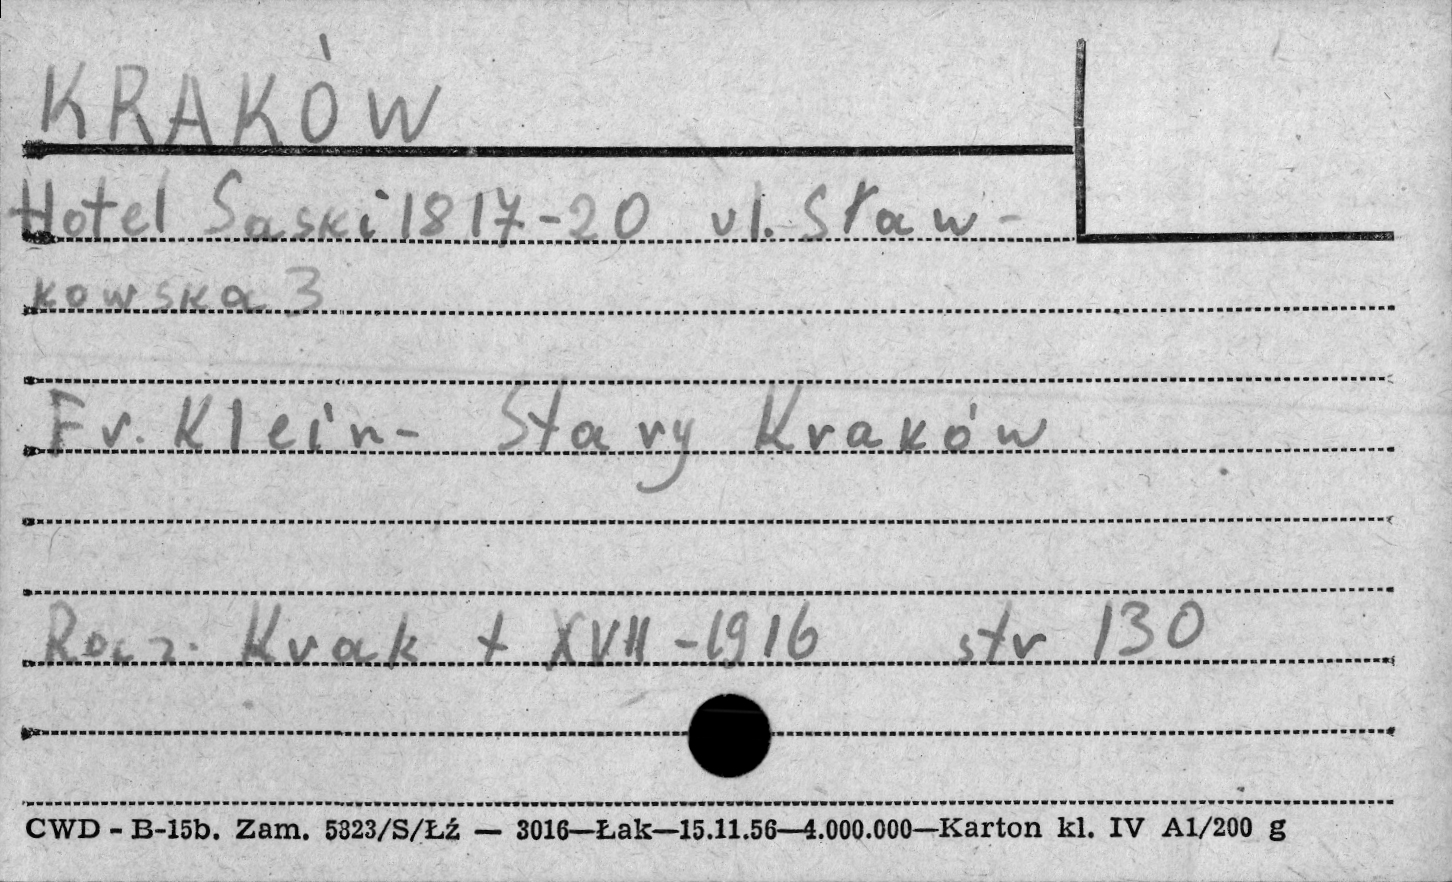 KRAKÓW
Hotel Saski 1817-20 ul. Sław-
kowska 3
Fr. Klein - Stary Kraków
Rocz. Krak t XVII - 1916 str 130
CWD - B-15b. Zam. 5823/S/Łź — 3016—Łak—15.11.56—4.000.000—Karton kl. IV A1/200 g